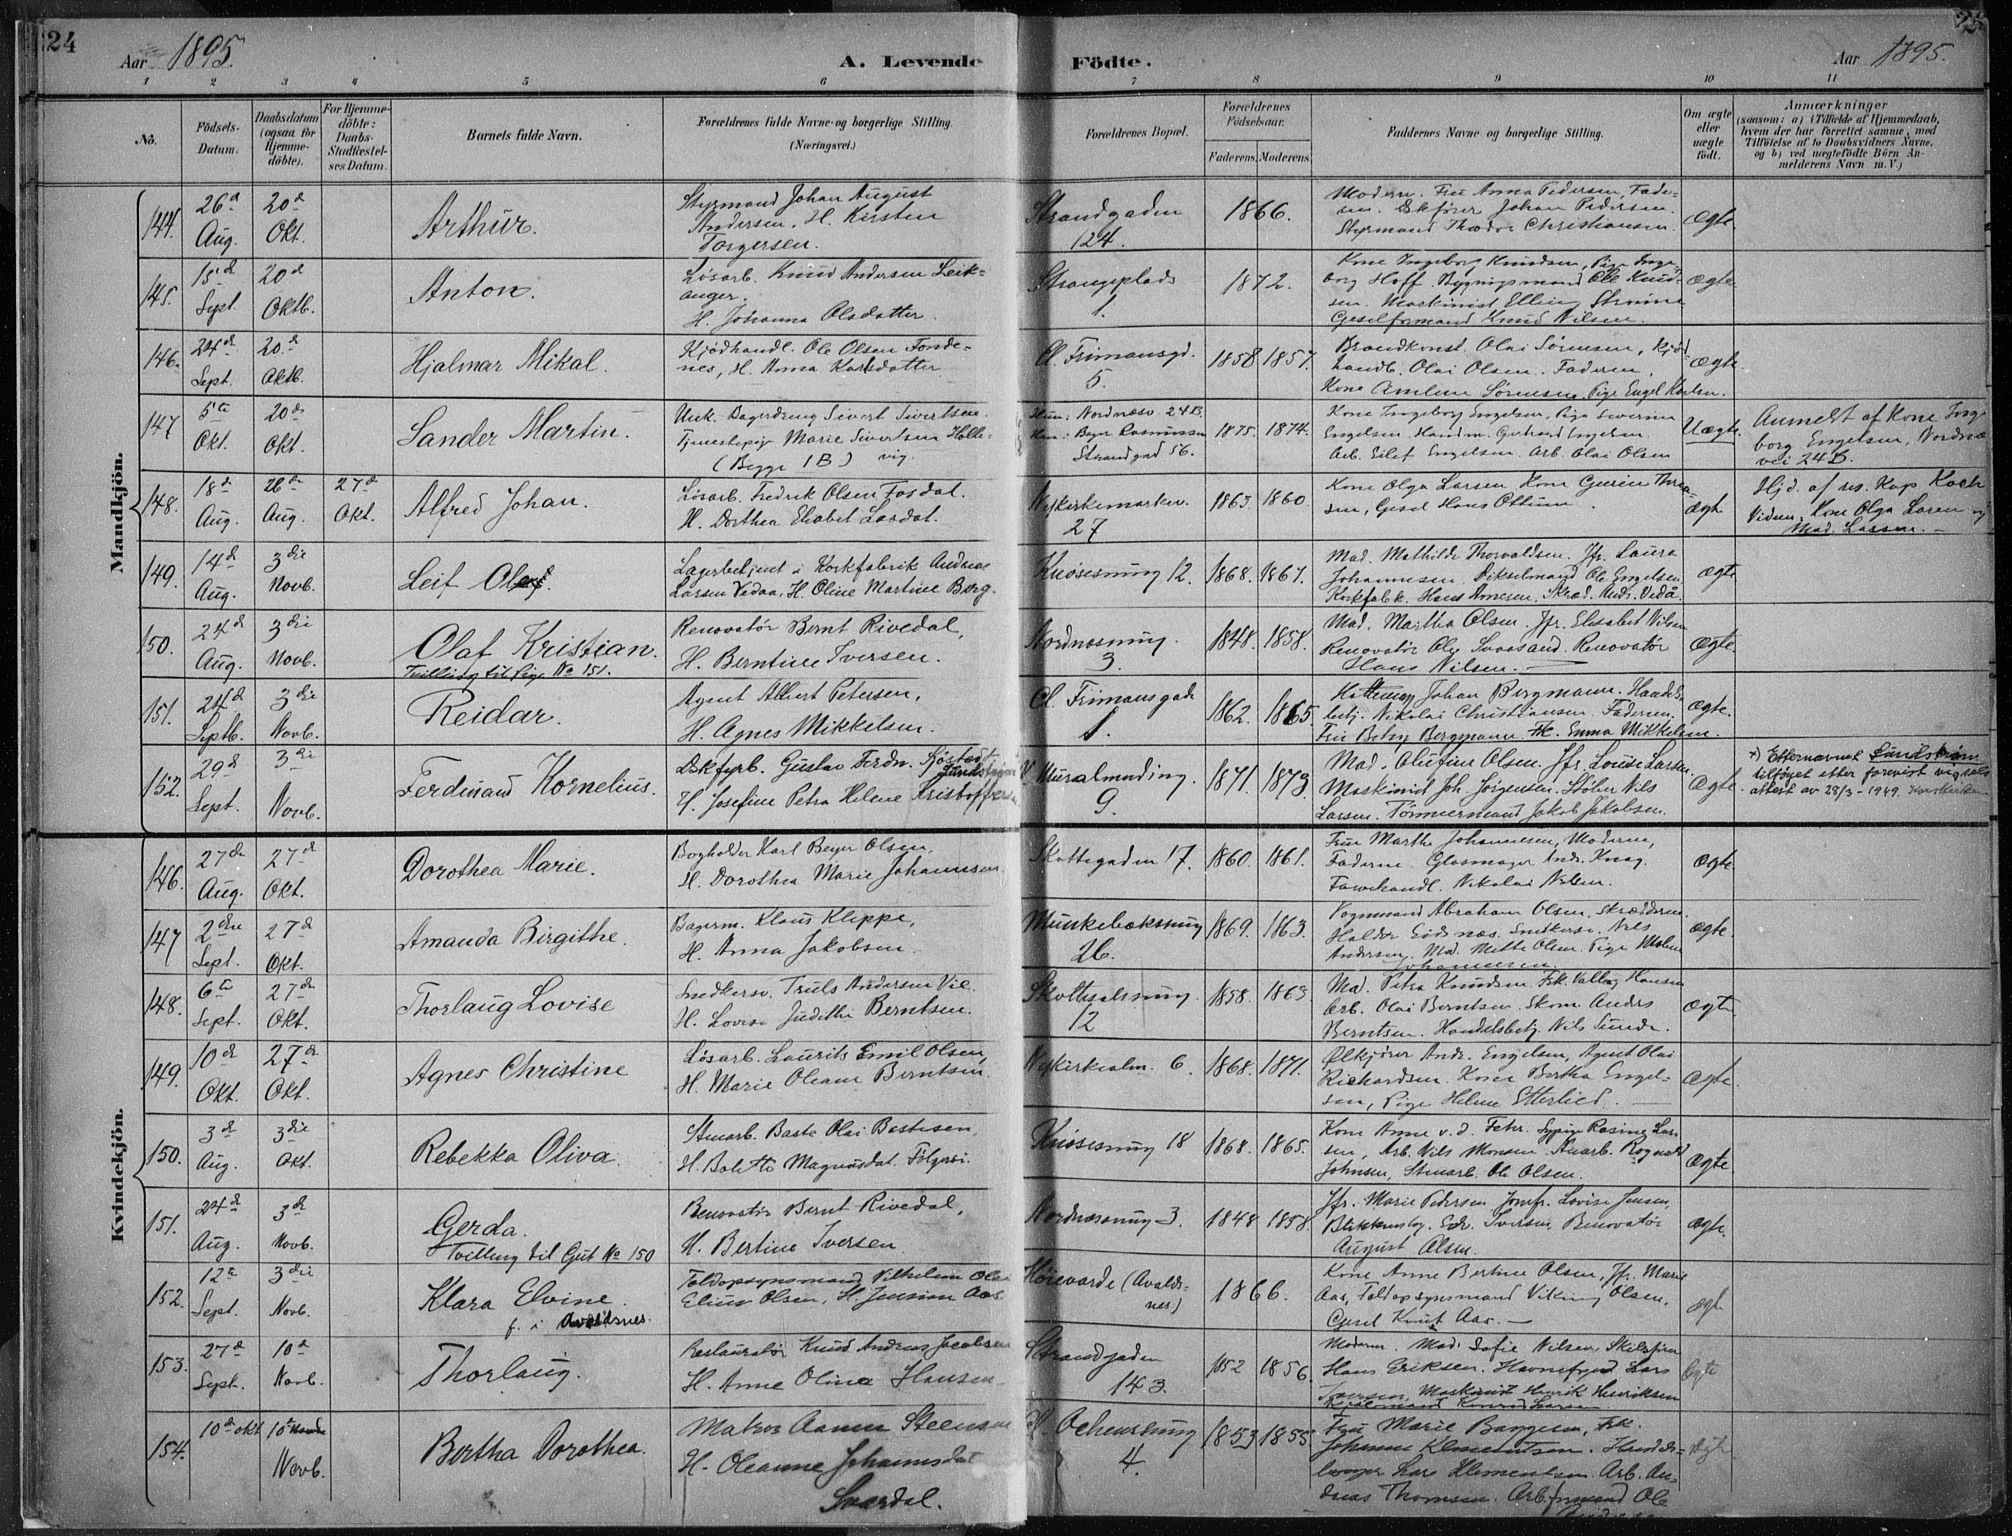 24
Aar 1895.
A. Levende Födte.
Aar 1895.
1 2 3 4 5 6 7 8 9 10 11
No.
Födsels-Datum.
Daabsdatum (ogsaa for Hjemmedöbte).
For Hjemmedöbte: Daabs-Stadfæstelses Datum.
Barnets fulde Navn.
Forældrenes fulde Navne og borgerlige Stilling. (Næringsvei.)
Forældrenes Bopæl.
Forældrenes Födselsaar.
Faderens. Moderens.
Faddernes Navne og borgerlige Stilling.
Om ægte eller uægte födt.
Anmærkninger
(saasom: a) i Tilfælde af Hjemmedaab, hvem der har forrettet samme, med Tilföielse af to Daabsvidners Navne, og b) ved uægtefödte Börn Anmelderens Navn m. V.)
Mandkjön.
144. 26d Aug. 20d Okt. Arthur.
Styrmand Johan August
Andersen, H. Kirsten
Torgersen.
Strandgaden
124.
1866.
Modern. Fru Anna Pedersen, Fade-
ren. Johan Pedersen.
Styrmand Theodor Christiansen.
Ægte.
145. 15d Sept. 20d Oktb. Anton.
Løsarb. Knud Andersen Leik-
anger.
H. Johanna Olsdatter.
1.
1872.
Kone Ingeborg Knudsen, Pige Inge-
borg Hoff. Bygningsmand Ole Knud-
sen. Maskinist Elling
Knud Nilsen.
Ægte.
146. 24d Sept. 20d Oktb. Hjalmar Mikal.
Kjødhandl. Ole Olsen Tonde-
nes, H. Anna Karlsdatter
Cl. Frimansgd.
5.
1858 1857.
Olai Sørensen, Kjød-
handl. Olai Olsen. Faderen,
Kone Sørensen, Pige Engel
Ægte.
147 5te Okt. 20de Okt. Sander Martin.
Unk. Bagerdreng Sivert Sivertsen.
Tjenestepige Marie Sivertsen Holle-
(Begge 1B) vig.
Hun: Nordnæsv. 24B.
Han: Rasmussen
Strandgad 56.
1875. 1874.
Kone Ingeborg Engelsen, Pige Severine
Engelsen. Engelsen.
Arb. Eilef Engelsen. Arb. Olai Olsen
Uægte.
Anmeldt af Kone Inge
borg Engelsen, Nordnæ
vei 24B.
148. 18d Aug. 26de Aug. 27d Okt. Alfred Johan.
Løsarb. Fredrik Olsen Fosdal.
H. Dorthea Elisabet Larsdat.
Nykirkemarken
27
1863 1860.
Kone Olga Larsen Kone Gurine
sen, Gesel Hans
Ægt.
Hjd. af res. Kap Koch
Vidner, Kone Olga Larsen og
Mad. Larsen. —
149. 14d Aug. 3die Novb. Leif Olaf.
Lagerbetjent i Korkfabrik Andreas
Larsen Vedaa, H. Oline Martine Borg.
Knøsesmug 12.
1868. 1867.
Mad. Mathilde Thorvaldsen. Jfr. Laura
Johannesen. Ole Engelsen
Hans Arnesen, Skræd. Andr. Vedå.
Ægte.
150. 24d Aug. 3die Novb. Olaf Kristian.
Tvilling til Pige No 151.
Renovatør Bernt Rivedal,
H. Berntine Iversen.
Nordnæsmug.
3.
1848. 1858.
Mad. Martha Olsen. Jfr. Elisabet Nilsen
Renovatør Ole Renovatør
Hans Nilsen.
Ægte.
151. 24d Septb. 3die Novb. Reidar.
Agent Albert Petersen,
H. Agnes Mikkelsen.
Cl. Frimansgade
1.
1862. 1865.
Johan Bergmann. Handels-
betj. Nikolai Christiansen. Faderen.
Fru Betsy Bergmann. Frk. Emma Mikkelsen.
Ægte.
152. 29d Sept. 3die Novb. Ferdinand Kornelius.
Gustav Ferdn. Sjösted
Lundstrøm
H. Josefine Petra Helene Kristoffersen
V. Muralmending.
9.
1871. 1873.
Mad. Olsen. Jfr. Louise Larsen.
Maskinist Joh. Jørgensen. Støber Nils
Larsen. Tømmermand Jakob Jakobsen.
Ægte.
x) Etternavnet Lundstrøm
tilføiet etter forevist vigsels
attest av 28/3-1949.
Kvindekjön.
146. 27de Aug. 27d Okt. Dorothea Marie.
Bogholder Karl Beyer Olsen,
H. Dorothea Marie Johannesen
Skottegaden 17.
1860. 1861.
Fru Marthe Johannesen, Moderen,
Faderen. Glasmager Andr. Knag.
Farvehandl. Nikolai Nilsen.
Ægte.
147 2den Sept. 27d Okt. Amanda Birgithe.
Bagerm. Klaus Klippe,
H. Anna Jakobsen
Munkebæksmug
26.
1869. 1863.
Vognmand Abraham Olsen. Skræddersv.
Halder Eidsnæs. Snedkersv. Nils
Andersen. Mad. Mette Olsen. Pige
Johannesen.
Ægte.
148. 6te Sept. 27de Okt. Thorlaug Lovise
Snedkersv. Truls Andersen Vie.
H. Lovise Judithe Berntsen.
12
1858. 1863.
Mad. Petra Knudsen Frk. Valborg Hansen
Arb. Olai Berntsen. Skom Anders
Berntsen. Handelsbetj. Nils Sunde.
Ægte
149. 10de Okt. 27de Okt. Agnes Christine
Løsarb. Laurits Emil Olsen
H. Marie Oleane Berntsen.
Nykirkealm. 6.
1868. 1871.
Ølkjører Andr. Engelsen, Agent Olai
Richardsen. Kone Bertha Engel-
sen, Pige Helene Etterlied.
Ægte.
150. 3d Aug. 3die Okt. Rebekka Oliva.
Stuarb. Baste Olai Bastesen
H. Bolette Magnusdat.
Knøsesmug 18
1868. 1865.
Kone Anne v. d. Fehr. Sypige Rasine Lar-
sen, Arb. Nils Monsen. Rognald
Johnsen, Stuarb. Ole Olsen.
Ægte.
151. 24d Aug. 3d Novb. Gerda.
Tvilling til Gut No 150
Renovatør Bernt Rivedal,
H. Bertine Iversen
Nordnæsmug 3.
1848 1858.
Jfr. Marie Pedersen, Jomfr. Lovise Jensen,
Edv. Iversen, Renovatør
August Olsen.
Ægte.
152. 12te Sept. 3die Novb. Klara Elvine.
f. i Avaldsnes.
Toldopsynsmand Vilhelm Olai
Elius Olsen, H. Jensine Aas
(Avalds-
nes)
1866.
Kone Anne Bertine Olsen, Jfr. Marie
Aas, Toldopsynsmand Viking Olsen,
Gesel Knut Aas. —
Ægt.
153. 27d Sept. 10d Novb. Thorlaug.
Restauratør Knud Andreas Jacobsen
H. Anne Olina Hansen
Strandgaden
143.
1852 1856.
Moderen. Mad. Sofie Nilsen,
Hans Eriksen. Lars
Maskinist Henrik Henriksen
Ægte
154. 10de okt 10de Novb. Bertha Dorothea.
Matros Steensen
H. Oleanne Johannesdat
Svardal.
4.
1853 1855
Fru Marie
Johanne Klementsen.
Lars Klementsen Arb. An-
dreas Thomsen. Arb.formand Ole